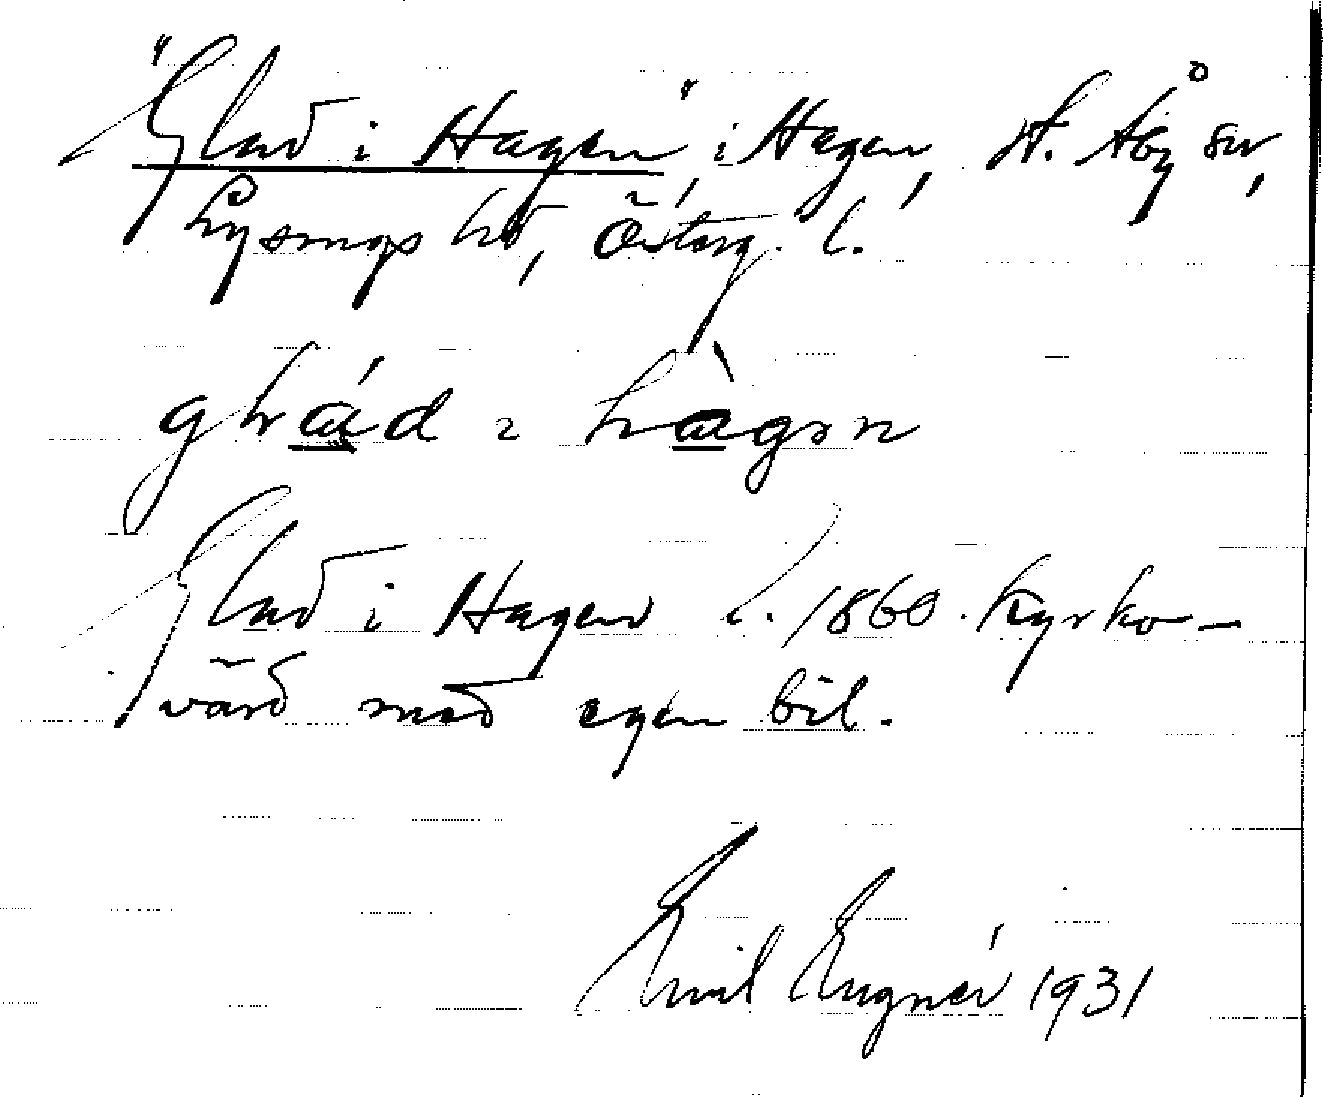 "Glad i Hagen", i Hagen, St. Åby sn,
Lysings hd, Österg. l.
Glad i Hagen l. 1860. Kyrko-
värd med egen bil.
Emil Engnér 1931